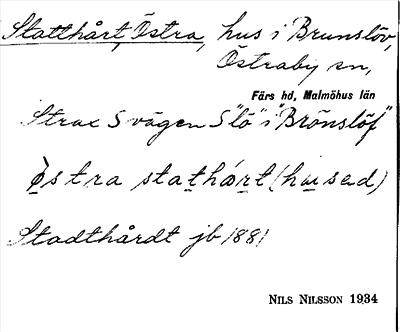 Statthårt, Östra, hus i Brunslöv,
Östraby sn,
Färs hd, Malmöhus län
Strax S vägen S "lö" i "Brönslöf"
östra stathårt (hused)
Stadthårdt jb 1881
NILS NILSSON 1934